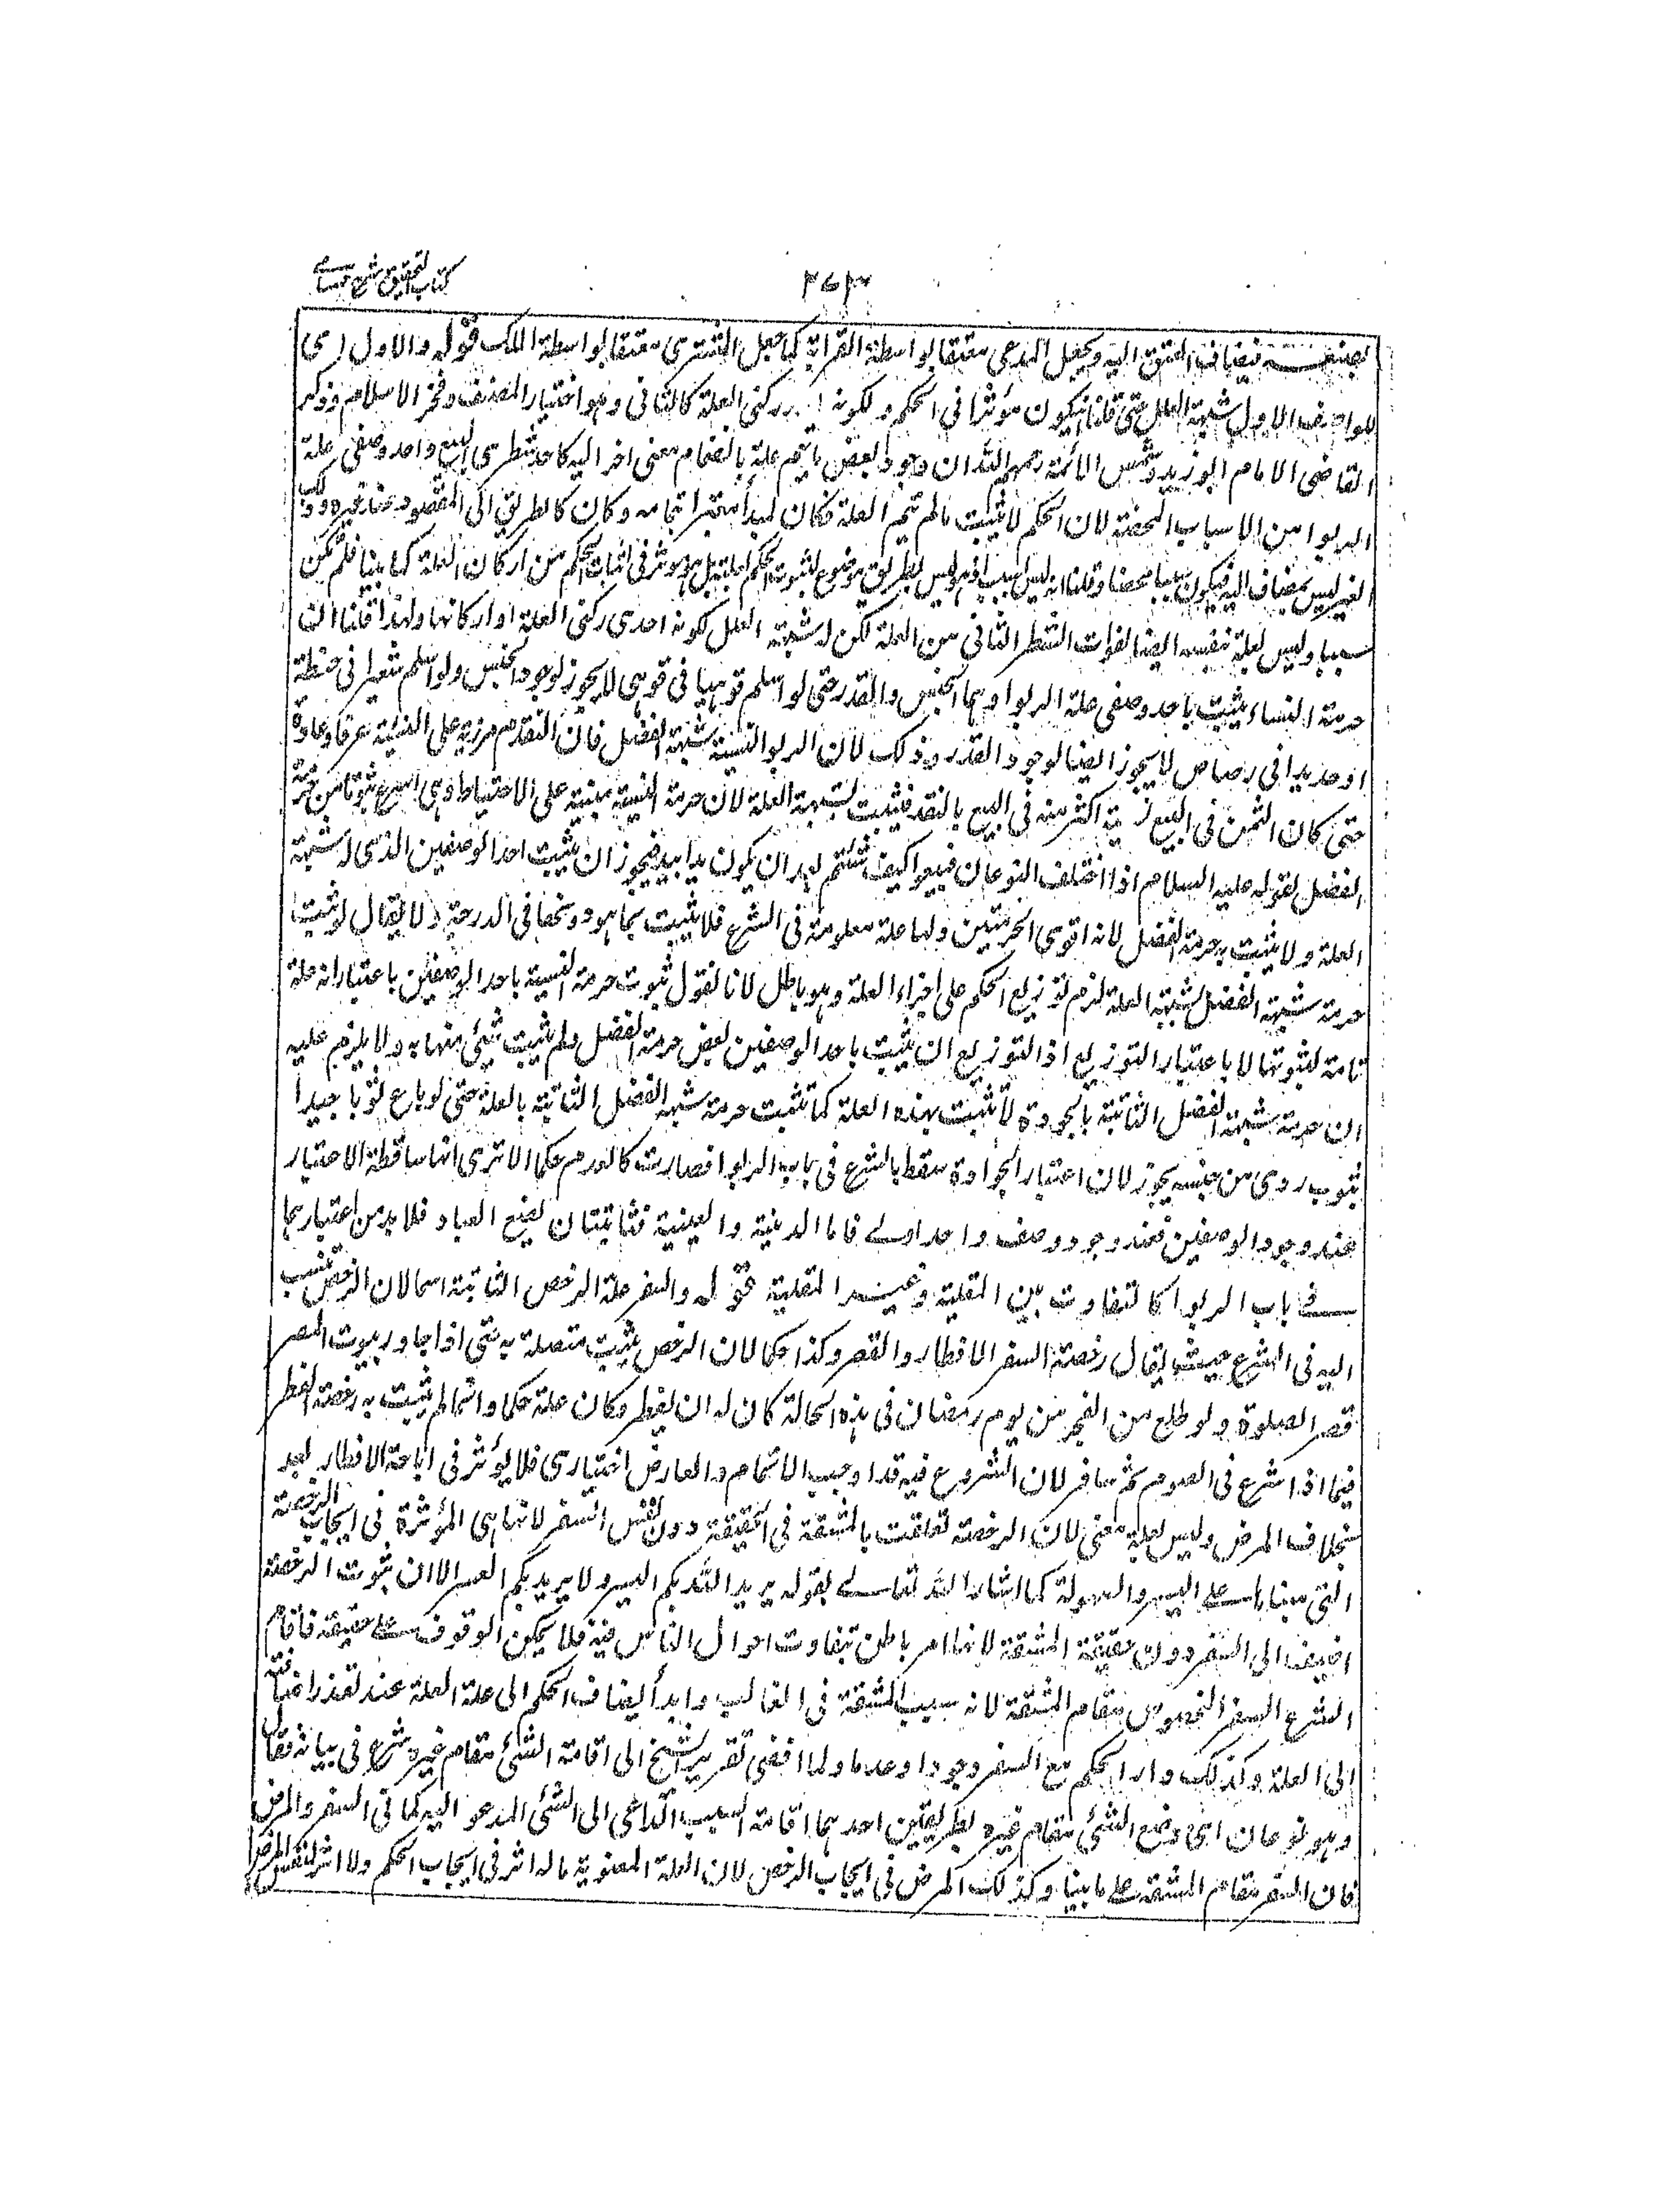 كتاب التحقيق شرح حسامى
٣٤٣
بصنعه فيضاف العتق اليه ويجعل المدعى معتقا بواسطة القرابة كما جعل المشترى معتقا بواسطة الملك قوله والاول اى
للوصف الاول شبهة العلل حتى قلنا يكون مؤثرا فى الحكم ولكونه ركنى العلة كالثانى وهو اختيار المصنف وفخر الاسلام وذكر
القاضى الامام ابو زيد وشمس الائمة رحمهم الله ان وجود بعض ما يتم علة بانضمام معنى اخر اليه كاحد شطرى البيع واحد وصفى علة
الربوا من الاسباب المحضة لان الحكم لا يثبت مالم تتم العلة فكان المبدأ معتبرا بتمامه وكان كالطريق الى المقصود عند غيره وذلك
الغير ليس بمضاف اليه فيكون سببا محضا وقلنا انه ليس بسبب اذ هو ليس بطريق موضوع لثبوت الحكم بعلته بل هو مؤثر فى اثبات الحكم من اركان العلة كما بينا فلم يكن
سببا وليس بعلة بنفسه ايضا لفوات الشطر الثانى من العلة لكن له شبهة العلل لكونه احدى ركنى العلة او اركانها ولهذا قلنا ان
حرمة النساء يثبت باحد وصفى علة الربوا وهما الجنس والقدر حتى لو اسلم قوهيا فى قوهى لا يجوز لوجود الجنس ولو اسلم شعيرا فى حنطة
او حديدا فى رصاص لا يجوز ايضا لوجود القدر وذلك لان لربوا النسيئة شبهة الفضل فان للنقد مزية على النسيئة عرفا وعادة
حتى كان الثمن فى البيع نسيئة اكثر منه فى البيع بالنقد فيثبت بشبهة العلة لان حرمة النسيئة مبنية على الاحتياط وهى اسرع ثبوتا من حرمة
الفضل لقوله عليه السلام اذا اختلف النوعان فبيعوا كيف شئتم بعد ان يكون يدا بيد فيجوز ان يثبت احد الوصفين الذى له شبهة
العلة ولا يثبت به حرمة الفضل لانه اقوى الحرمتين ولها علة معلومة فى الشرع فلا يثبت بما هو دونها فى الدرجة ولا يقال لو ثبت
حرمة شبهة الفضل بشبهة العلة لزم توزيع الحكم على اجزاء العلة وهو باطل لانا نقول ثبوت حرمة النسيئة باحد الوصفين باعتبار انه علة
تامة لثبوتها لا باعتبار التوزيع اذ التوزيع ان يثبت باحد الوصفين بعض حرمة الفضل ولم يثبت شئ منها به ولا يلزم عليه
ان حرمة شبهة الفضل الثابتة بالجودة لا تثبت بهذه العلة كما تثبت حرمة شبهة الفضل الثابتة بالعلة حتى لو باع ثوبا جيدا
بثوب ردى من جنسه يجوز لان اعتبار الجودة سقط بالشرع فى باب الربوا فصارت كالعدم حكما الا ترى انها ساقطة الاعتبار
عند وجود الوصفين فعند وجود وصف واحد اولى فاما الدينية والعينية فثابتتان بصنع العباد فلا بد من اعتبارهما
فى باب الربوا كالتفاوت بين المقلية وغير المقلية قوله والسفر علة الرخص الثابتة اسما لان الرخص تنسب
اليه فى الشرع حيث يقال رخصة السفر الافطار والقصر وكذا حكما لان الرخص يثبت متصلة به حتى اذا جاوز بيوت المصر
قصر الصلوة ولو طلع من الفجر من يوم رمضان فى هذه الحالة كان له ان يفطر وكان علة حكما وانما لم يثبت به رخصة الفطر
فيما اذا شرع فى الصوم ثم سافر لان الشروع فيه قد اوجب الاتمام والعارض اختيارى فلا يؤثر فى اباحة الافطار بعد
بخلاف المرض وليس بعلة معنى لان الرخصة تعلقت بالمشقة فى الحقيقة دون نفس السفر لانها هى المؤثرة فى ايجاب الرخصة
التى مبناها على اليسر والسهولة كما اشار الله تعالى بقوله يريد الله بكم اليسر ولا يريد بكم العسر الا ان ثبوت الرخصة
اضيفت الى السفر دون حقيقة المشقة لانها امر باطن تتفاوت احوال الناس فيه فلا يمكن الوقوف على حقيقته فاقام
الشرع السفر المخصوص مقام المشقة لانه سبب المشقة فى الغالب وابدأ يضاف الحكم الى علة العلة عند تعذر اضافته
الى العلة وكذلك دار الحكم مع السفر وجودا وعدما ولما افضى تقرير الشيخ الى اقامة الشئ مقام غيره شرع فى بيانه فقال
وهو نوعان اى وضع الشئ مقام غيره بطريقين احدهما اقامة السبب الداعى الى الشئ المدعو اليه كما فى السفر والمرض
فان السفر مقام المشقة على ما بينا وكذلك المرض فى ايجاب الرخص لان العلة المعنوية ما له اثر فى ايجاب الحكم ولا اثر لنفس المرض